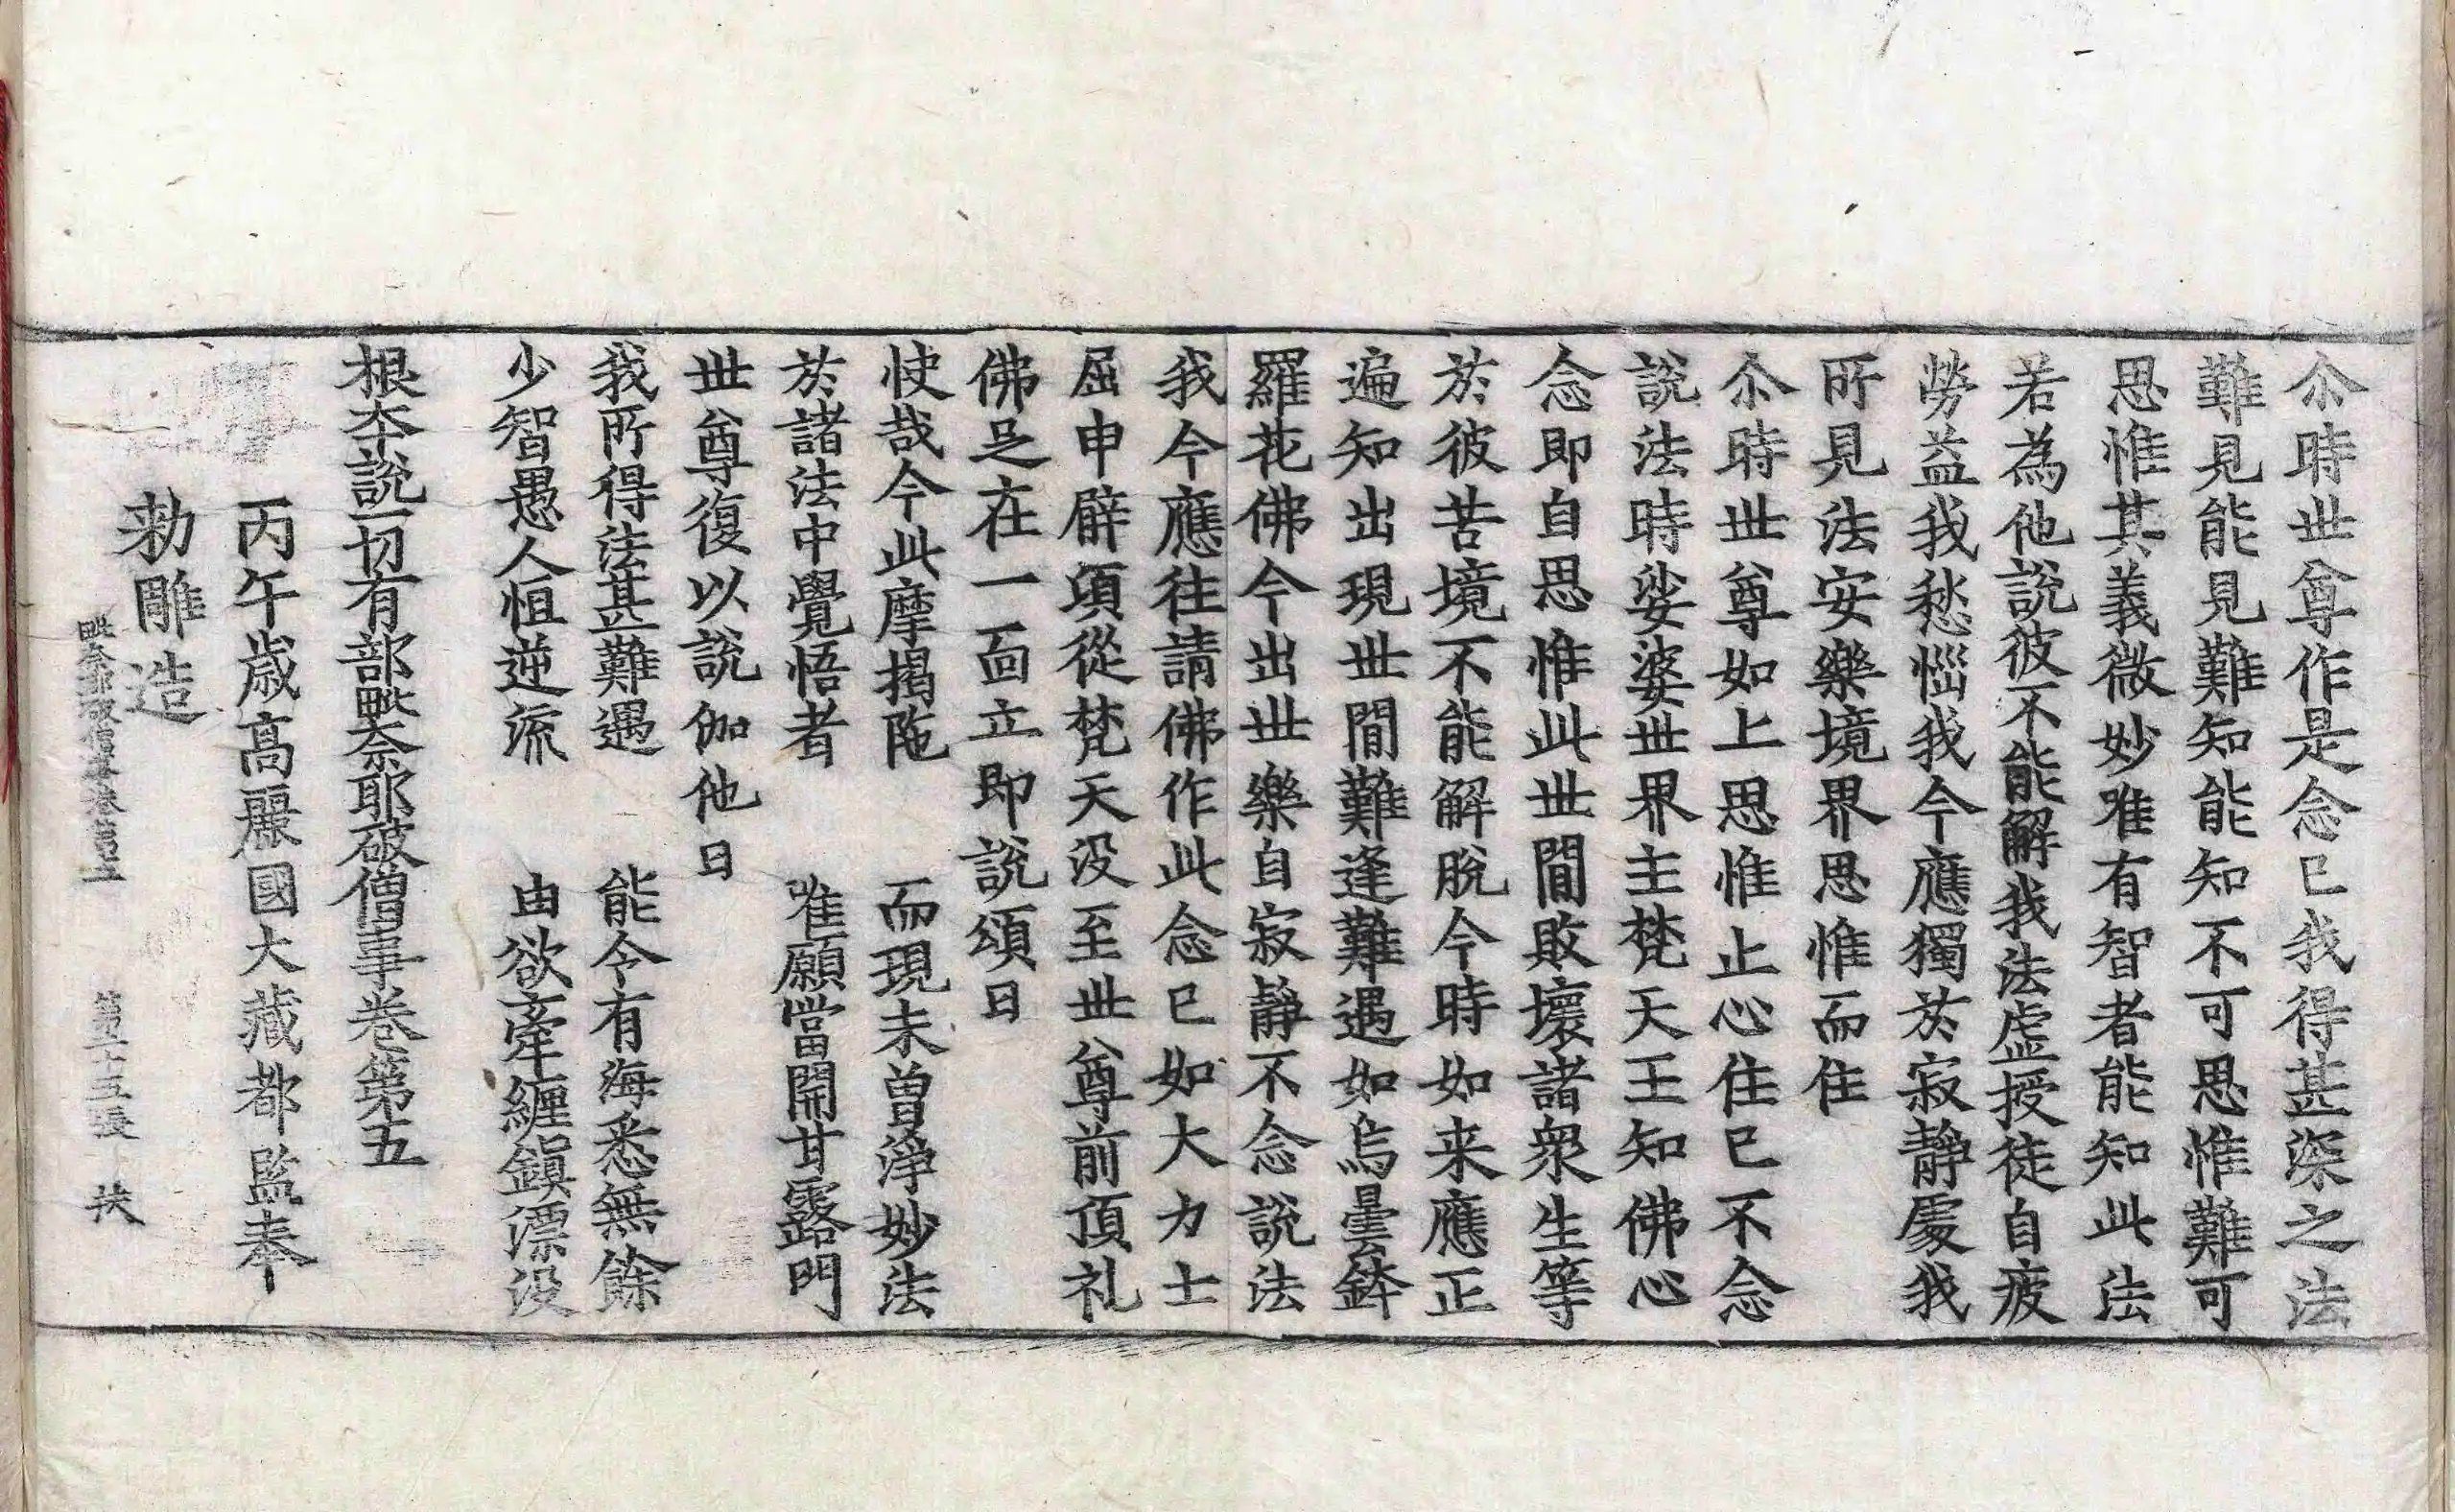 尒時世尊作是念已我得甚深之法
難見能見難知能知不可思惟難可
思惟其義微妙唯有智者能知此法
若為他說彼不能解我法虛授徒自疲
勞益我愁惱我今應獨於寂靜處我
所見法安樂境界思惟而住
尒時世尊如上思惟止心住已不念
說法時娑婆世界主梵天王知佛心
念即自思惟此世間敗壞諸衆生等
於彼苦境不能解脫今時如来應正
遍知出現世間難逢難遇如烏曇鉢
羅花佛今出世樂自寂靜不念說法
我今應往請佛作此念已如大力士
屈申臂頃從梵天没至世尊前頂礼
佛足在一面立即說頌曰
快哉今此摩揭陁　而現未曾淨妙法
於諸法中覺悟者　唯願當開甘露門
世尊復以說伽他曰
我所得法甚難遇　能令有海悉無餘
少智愚人恒逆流　由欲牽纏鎭漂没
根本說一切有部毗奈耶破僧事卷第五
丙午歲高麗國大藏都監奉
勅雕造
毗奈耶破僧事卷第五　第二十五張　扶